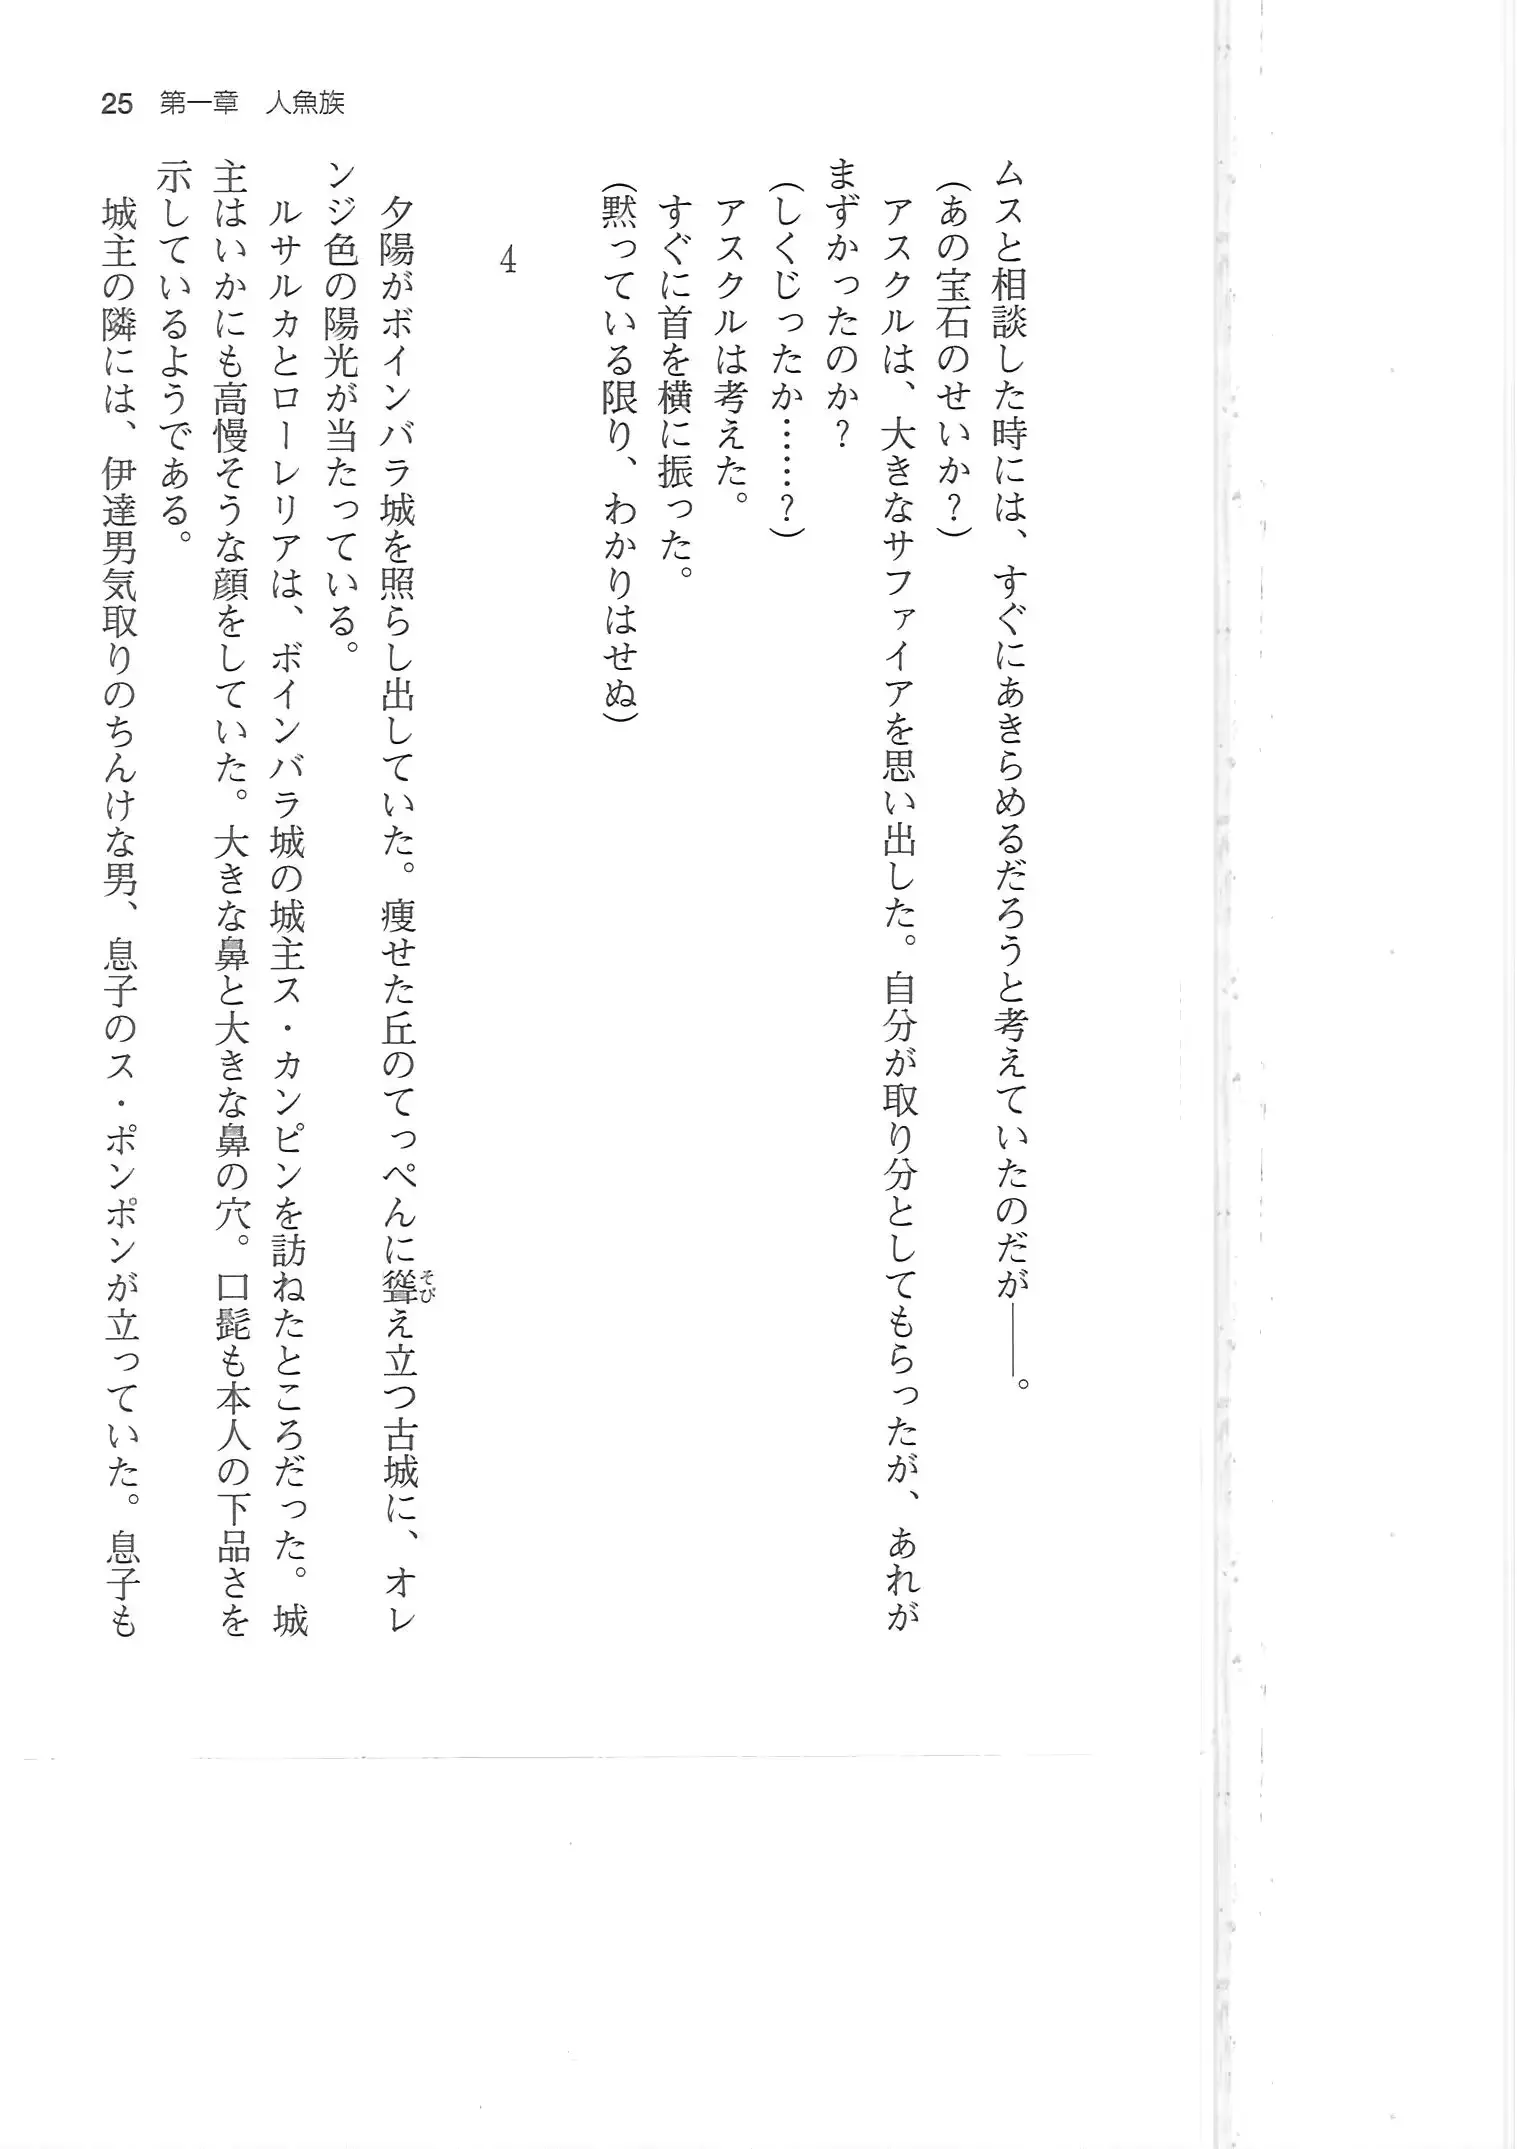 25 第一章 人魚族
ムスと相談した時には、すぐにあきらめるだろうと考えていたのだが――。
(あの宝石のせいか?)
アスクルは、大きなサファイアを思い出した。自分が取り分としてもらったが、あれが
まずかったのか?
(しくじったか……?)
アスクルは考えた。
すぐに首を横に振った。
(黙っている限り、わかりはせぬ)
4
夕陽がボインバラ城を照らし出していた。痩せた丘のてっぺんに聳え立つ古城に、オレ
そび
ンジ色の陽光が当たっている。
ルサルカとローレリアは、ボインバラ城の城主ス・カンピンを訪ねたところだった。城
主はいかにも高慢そうな顔をしていた。大きな鼻と大きな鼻の穴。口髭も本人の下品さを
示しているようである。
城主の隣には、伊達男気取りのちんけな男、息子のス・ポンポンが立っていた。息子も